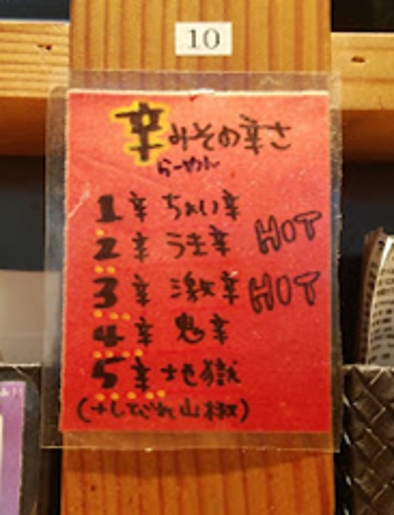 10
辛みその辛さ
らーめん
1辛 ちょい辛
2辛 うま辛 HIT
3辛 激辛 HIT
4辛 鬼辛
5辛 地獄
(+しびれ山椒)